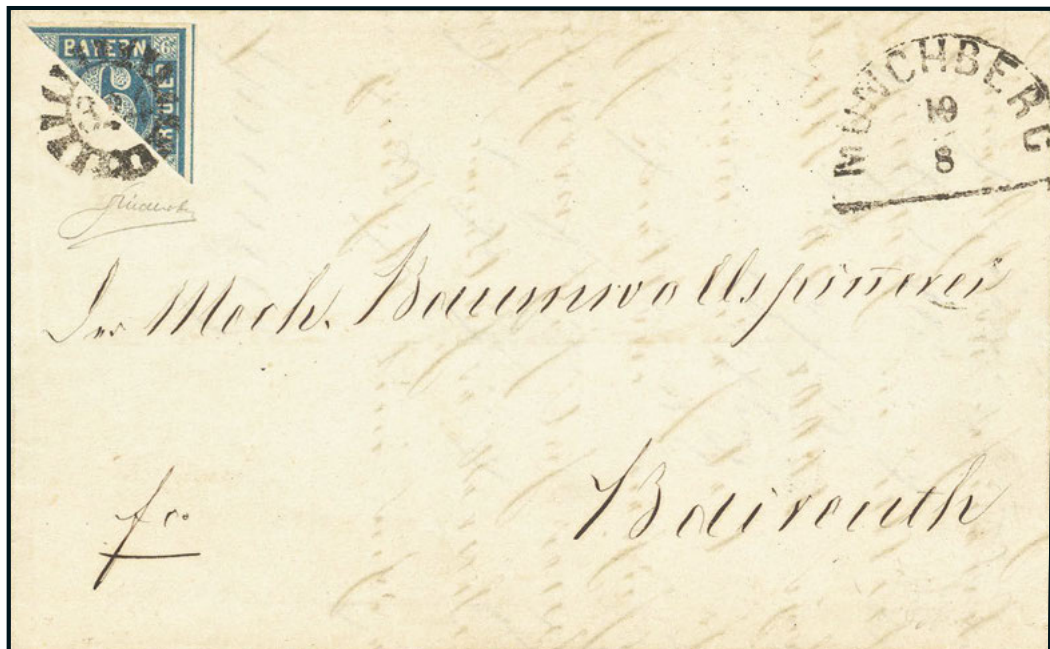 BAYERN
6
MÜNCHBERG
19
8
Der Mech. Baumwollspinnerei
fco.
Baireuth